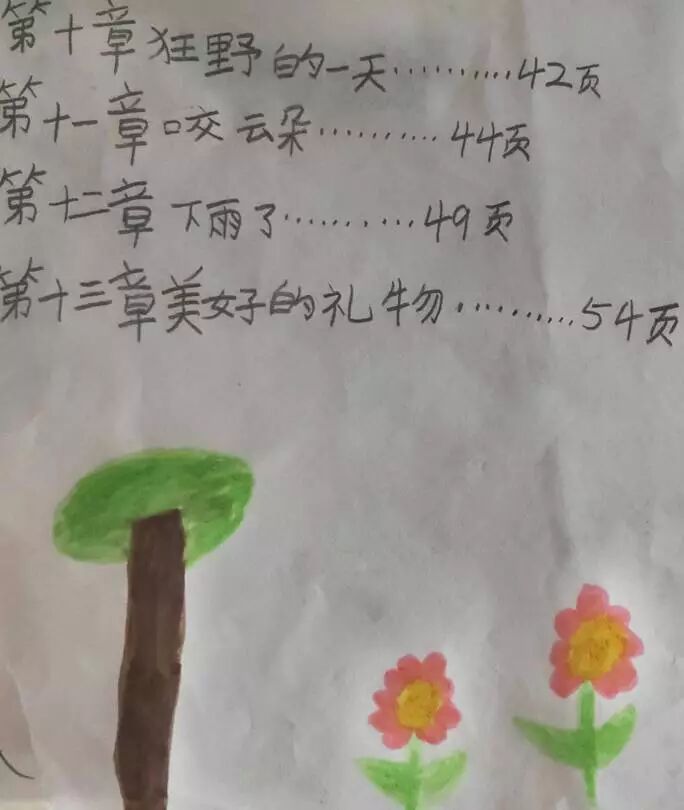 第十章狂野的一天………42页
第十一章咬云朵………44页
第十二章下雨了………49页
第十三章美好的礼物………54页